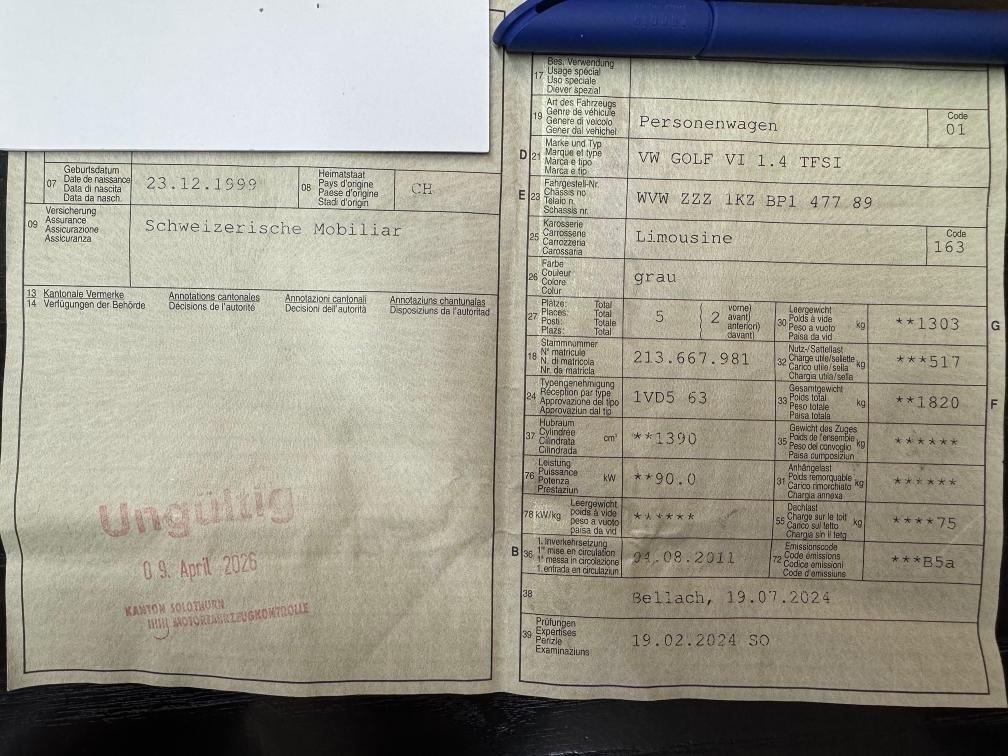 07
Geburtsdatum
Date de naissance
Data di nascita
Data da nasch.
23.12.1999
08
Heimatstaat
Pays d'origine
Paese d'origine
Stadi d'origin
CH
09
Versicherung
Assurance
Assicurazione
Assicuranza
Schweizerische Mobiliar
13 Kantonale Vermerke
14 Verfügungen der Behörde
Annotations cantonales
Décisions de l'autorité
Annotazioni cantonali
Decisioni dell'autorità
Annotaziuns chantunalas
Disposiziuns da l'autoritad
Ungültig
09. April 2026
KANTON SOLOTHURN
MOTORFAHRZEUGKONTROLLE
17
Bes. Verwendung
Usage spécial
Uso speciale
Diever spezial
19
Art des Fahrzeugs
Genre de véhicule
Genere di veicolo
Gener dal vehichel
Personenwagen
Code
01
D 21
Marke und Typ
Marque et type
Marca e tipo
Marca e tip
VW GOLF VI 1.4 TFSI
E 23
Fahrgestell-Nr.
Châssis no
Telaio n.
Schassis nr.
WVW ZZZ 1KZ BP1 477 89
25
Karosserie
Carrosserie
Carrozzeria
Carossaria
Limousine
Code
163
26
Farbe
Couleur
Colore
Colur
grau
27
Plätze: Total
Places: Total
Posti: Totale
Plazs: Total
5
( 2
vorne)
avant)
anteriori)
davant)
30
Leergewicht
Poids à vide
Peso a vuoto
Paisa da vid
kg
**1303
G
18
Stammnummer
N° matricule
N. di matricola
Nr. da matricla
213.667.981
32
Nutz-/Sattellast
Charge utile/sellette
Carico utile/sella
Chargia utila/sella
kg
***517
24
Typengenehmigung
Réception par type
Approvazione del tipo
Approvaziun dal tip
1VD5 63
33
Gesamtgewicht
Poids total
Peso totale
Paisa totala
kg
**1820
F
37
Hubraum
Cylindrée
Cilindrata
Cilindrada
cm³
**1390
35
Gewicht des Zuges
Poids de l'ensemble
Peso del convoglio
Paisa cumposiziun
kg
******
76
Leistung
Puissance
Potenza
Prestaziun
kW
**90.0
31
Anhängelast
Poids remorquable
Carico rimorchiato
Chargia annexa
kg
******
78 kW/kg
Leergewicht
poids à vide
peso a vuoto
paisa da vid
******
55
Dachlast
Charge sur le toit
Carico sul tetto
Chargia sin il tetg
kg
****75
B 36
1. Inverkehrsetzung
1re mise en circulation
1a messa in circolazione
1. entrada en circulaziun
04.08.2011
72
Emissionscode
Code émissions
Codice emissioni
Code d'emissiuns
***B5a
38
Bellach, 19.07.2024
39
Prüfungen
Expertises
Perizie
Examinaziuns
19.02.2024 SO